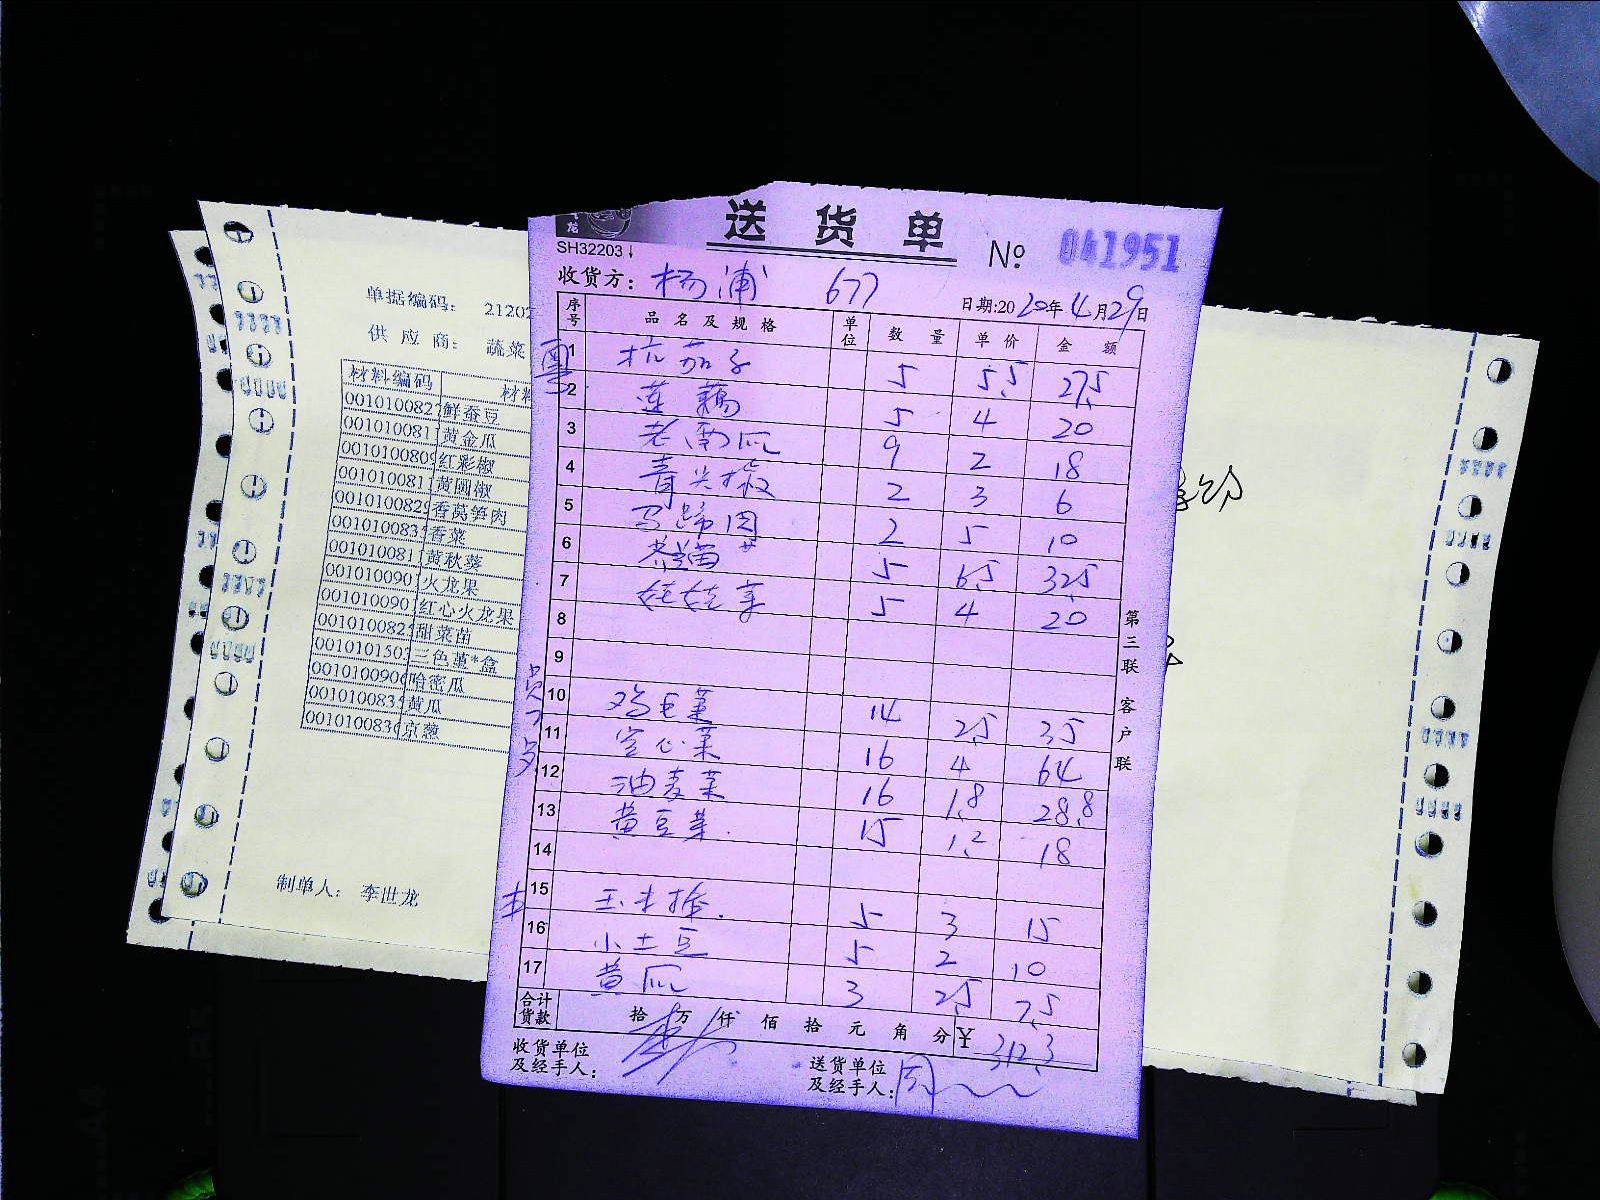 送货单
SH32203↓
№ 041951
收货方: 杨浦 677
日期:2020年4月29日
序号 品名及规格 单位 数量 单价 金额
1 杭茄子 5 5.5 27.5
2 莲藕 5 4 20
3 老南瓜 9 2 18
4 青尖椒 2 3 6
5 马蹄肉 2 5 10
6 5 6.5 32.5
7 娃娃菜 5 4 20
8
9
10 鸡毛菜 14 2.5 35
11 空心菜 16 4 64
12 油麦菜 16 1.8 28.8
13 黄豆芽 15 1.2 18
14
15 玉米 5 3 15
16 小土豆 5 2 10
17 黄瓜 3 2.5 7.5
合计货款 拾 万 仟 佰 拾 元 角 分 ¥ 312.3
收货单位及经手人:
送货单位及经手人: 周
第三联 客户联
单据编码: 21202
供应商: 蔬菜
材料编码 材料
001010082 鲜蚕豆
001010081 黄金瓜
001010080 红彩椒
001010081 黄圆椒
001010082 香莴笋肉
001010083 香菜
001010081 黄秋葵
001010090 火龙果
001010090 红心火龙果
001010082 甜菜苗
001010150 三色堇*盒
001010090 哈密瓜
001010083 黄瓜
001010083 京葱
制单人: 李世龙